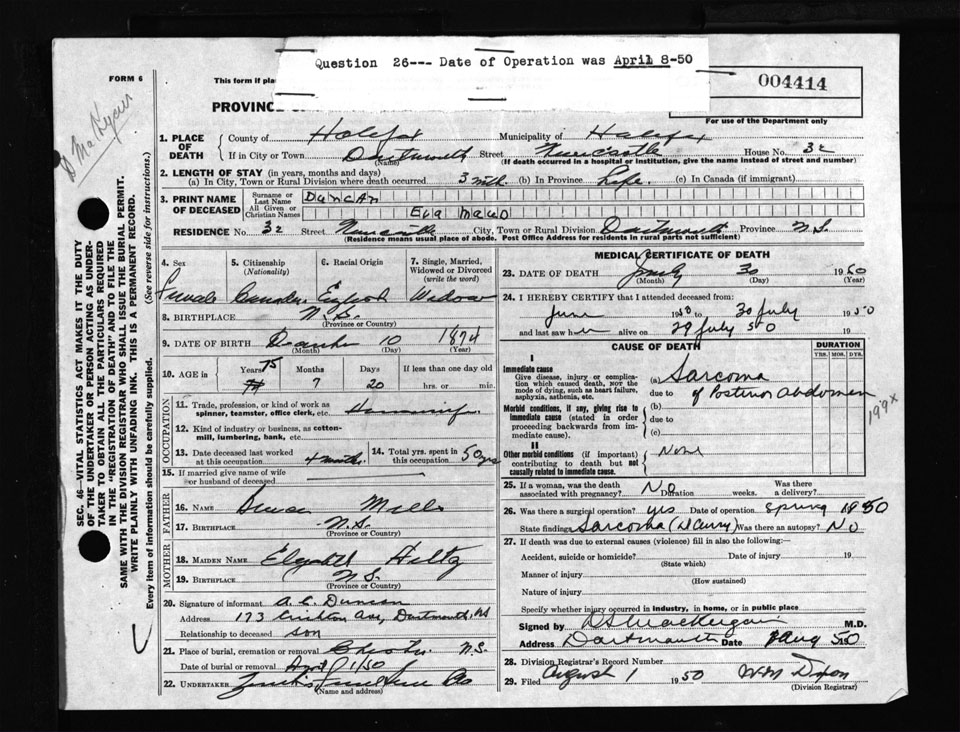 Question 26--- Date of Operation was April 8-50
004414
For use of the Department only
FORM 6
This form if
PROVINC
1. PLACE OF DEATH County of Halifax Municipality of Halifax
If in City or Town Dartmouth Street Newcastle House No. 32
(Name) (If death occurred in a hospital or institution, give the name instead of street and number)
2. LENGTH OF STAY (in years, months and days)
(a) In City, Town or Rural Division where death occurred 3 mth. (b) In Province Life. (c) In Canada (if immigrant)
3. PRINT NAME OF DECEASED Surname or Last Name DUNCAN
All Given or Christian Names EVA MAUD
RESIDENCE No. 32 Street Newcastle City, Town or Rural Division Dartmouth Province N.S.
(Residence means usual place of abode. Post Office Address for residents in rural parts not sufficient)
4. Sex 5. Citizenship (Nationality) 6. Racial Origin 7. Single, Married, Widowed or Divorced (write the word)
Female English Widow
8. BIRTHPLACE N.S.
(Province or Country)
9. DATE OF BIRTH December 10 1874
(Month) (Day) (Year)
10. AGE in Years Months Days If less than one day old
75 7 20 hrs. or min.
OCCUPATION
11. Trade, profession, or kind of work as spinner, teamster, office clerk, etc. Housewife
12. Kind of industry or business, as cotton-mill, lumbering, bank, etc.
13. Date deceased last worked at this occupation 4 months 14. Total yrs. spent in this occupation 50 yrs
15. If married give name of wife or husband of deceased
FATHER
16. NAME Mills
17. BIRTHPLACE N.S.
(Province or Country)
MOTHER
18. MAIDEN NAME Elizabeth Hiltz
19. BIRTHPLACE N.S.
(Province or Country)
20. Signature of informant A. C. Duncan
Address 173 Ave, Dartmouth, NS
Relationship to deceased son
21. Place of burial, cremation or removal N.S.
Date of burial or removal 1/50
22. UNDERTAKER
(Name and address)
MEDICAL CERTIFICATE OF DEATH
23. DATE OF DEATH July 30 1950
(Month) (Day) (Year)
24. I HEREBY CERTIFY that I attended deceased from:
June 1950 to 30 July 1950
and last saw her alive on 29 July 50 19
CAUSE OF DEATH DURATION
YRS. MOS. DYS.
I
Immediate cause
Give disease, injury or complication which caused death, NOT the mode of dying, such as heart failure, asphyxia, asthenia, etc.
(a) Sarcoma
due to of Posterior Abdomen
Morbid conditions, if any, giving rise to immediate cause (stated in order proceeding backwards from immediate cause).
(b)
due to
(c)
199X
II
Other morbid conditions (if important) contributing to death but not causally related to immediate cause.
None
25. If a woman, was the death associated with pregnancy? No Duration weeks. Was there a delivery?
26. Was there a surgical operation? yes Date of operation Spring 1950
State findings Sarcoma Was there an autopsy? No
27. If death was due to external causes (violence) fill in also the following:—
Accident, suicide or homicide? Date of injury 19
(State which)
Manner of injury
(How sustained)
Nature of injury
Specify whether injury occurred in industry, in home, or in public place
Signed by M.D.
Address Dartmouth Date Aug 50
28. Division Registrar's Record Number
29. Filed August 1 1950 W. M. Dixon
(Division Registrar)
SEC. 46—VITAL STATISTICS ACT MAKES IT THE DUTY
OF THE UNDERTAKER OR PERSON ACTING AS UNDER-
TAKER TO OBTAIN ALL THE PARTICULARS REQUIRED
IN THE "REGISTRATION OF DEATH" AND TO FILE THE
SAME WITH THE DIVISION REGISTRAR WHO SHALL ISSUE THE BURIAL PERMIT.
WRITE PLAINLY WITH UNFADING INK. THIS IS A PERMANENT RECORD.
Every item of information should be carefully supplied. (See reverse side for instructions.)